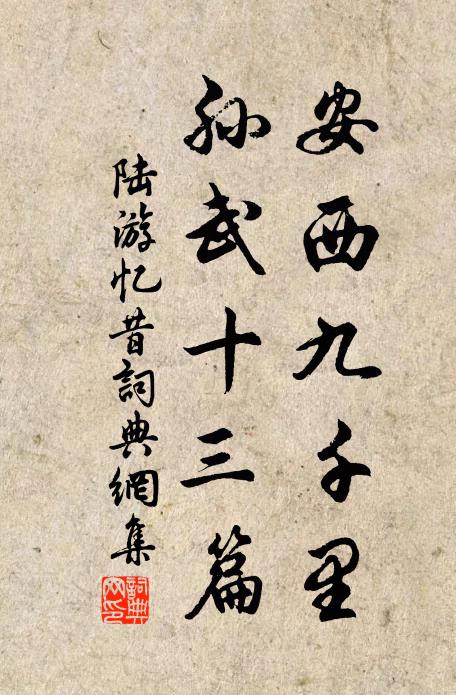 安西九千里
孙武十三篇
陆游忆昔詞典網集
詞典网印